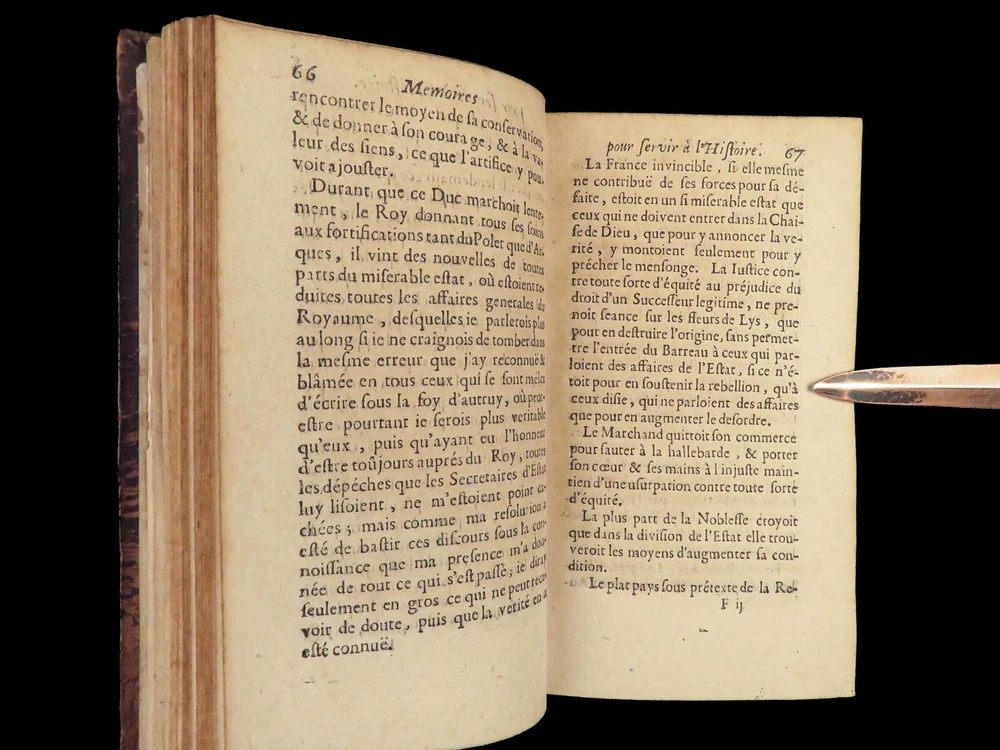 66 Memoires
rencontrer le moyen de sa conservation,
& de donner à son courage, & à la va-
leur des siens, ce que l'artifice y pou-
voit ajouster.
Durant que ce Duc marchoit lente-
ment, le Roy donnant tous ses soins
aux fortifications tant du Polet que d'Ar-
ques, il vint des nouvelles de toutes
parts du miserable estat, où estoient re-
duites toutes les affaires generales du
Royaume, desquelles ie parlerois plus
au long si ie ne craignois de tomber dans
la mesme erreur que j'ay reconnuë &
blâmée en tous ceux qui se sont mélez
d'écrire sous la foy d'autruy, où peut-
estre pourtant ie serois plus veritable
qu'eux, puis qu'ayant eu l'honneur
d'estre toûjours auprés du Roy, toutes
les dépéches que les Secretaires d'Estat
luy lisoient, ne m'estoient point ca-
chées; mais comme ma resolution a
esté de bastir ces discours sous la con-
noissance que ma presence m'a don-
née de tout ce qui s'est passé; ie diray
seulement en gros ce qui ne peut rece-
voir de doute, puis que la verité en a
esté connuë.
pour servir à l'Histoire. 67
La France invincible, si elle mesme
ne contribuë de ses forces pour sa dé-
faite, estoit en un si miserable estat que
ceux qui ne doivent entrer dans la Chai-
se de Dieu, que pour y annoncer la ve-
rité, y montoient seulement pour y
précher le mensonge. La Iustice con-
tre toute sorte d'équité au préjudice du
droit d'un Successeur legitime, ne pre-
noit seance sur les fleurs de Lys, que
pour en destruire l'origine, sans permet-
tre l'entrée du Barreau à ceux qui par-
loient des affaires de l'Estat, si ce n'é-
toit pour en soustenir la rebellion, qu'à
ceux disie, qui ne parloient des affaires
que pour en augmenter le desordre.
Le Marchand quittoit son commerce
pour sauter à la hallebarde, & porter
son cœur & ses mains à l'injuste main-
tien d'une usurpation contre toute sorte
d'équité.
La plus part de la Noblesse croyoit
que dans la division de l'Estat elle trou-
veroit les moyens d'augmenter sa con-
dition.
Le plat pays sous prétexte de la Re-
F ij